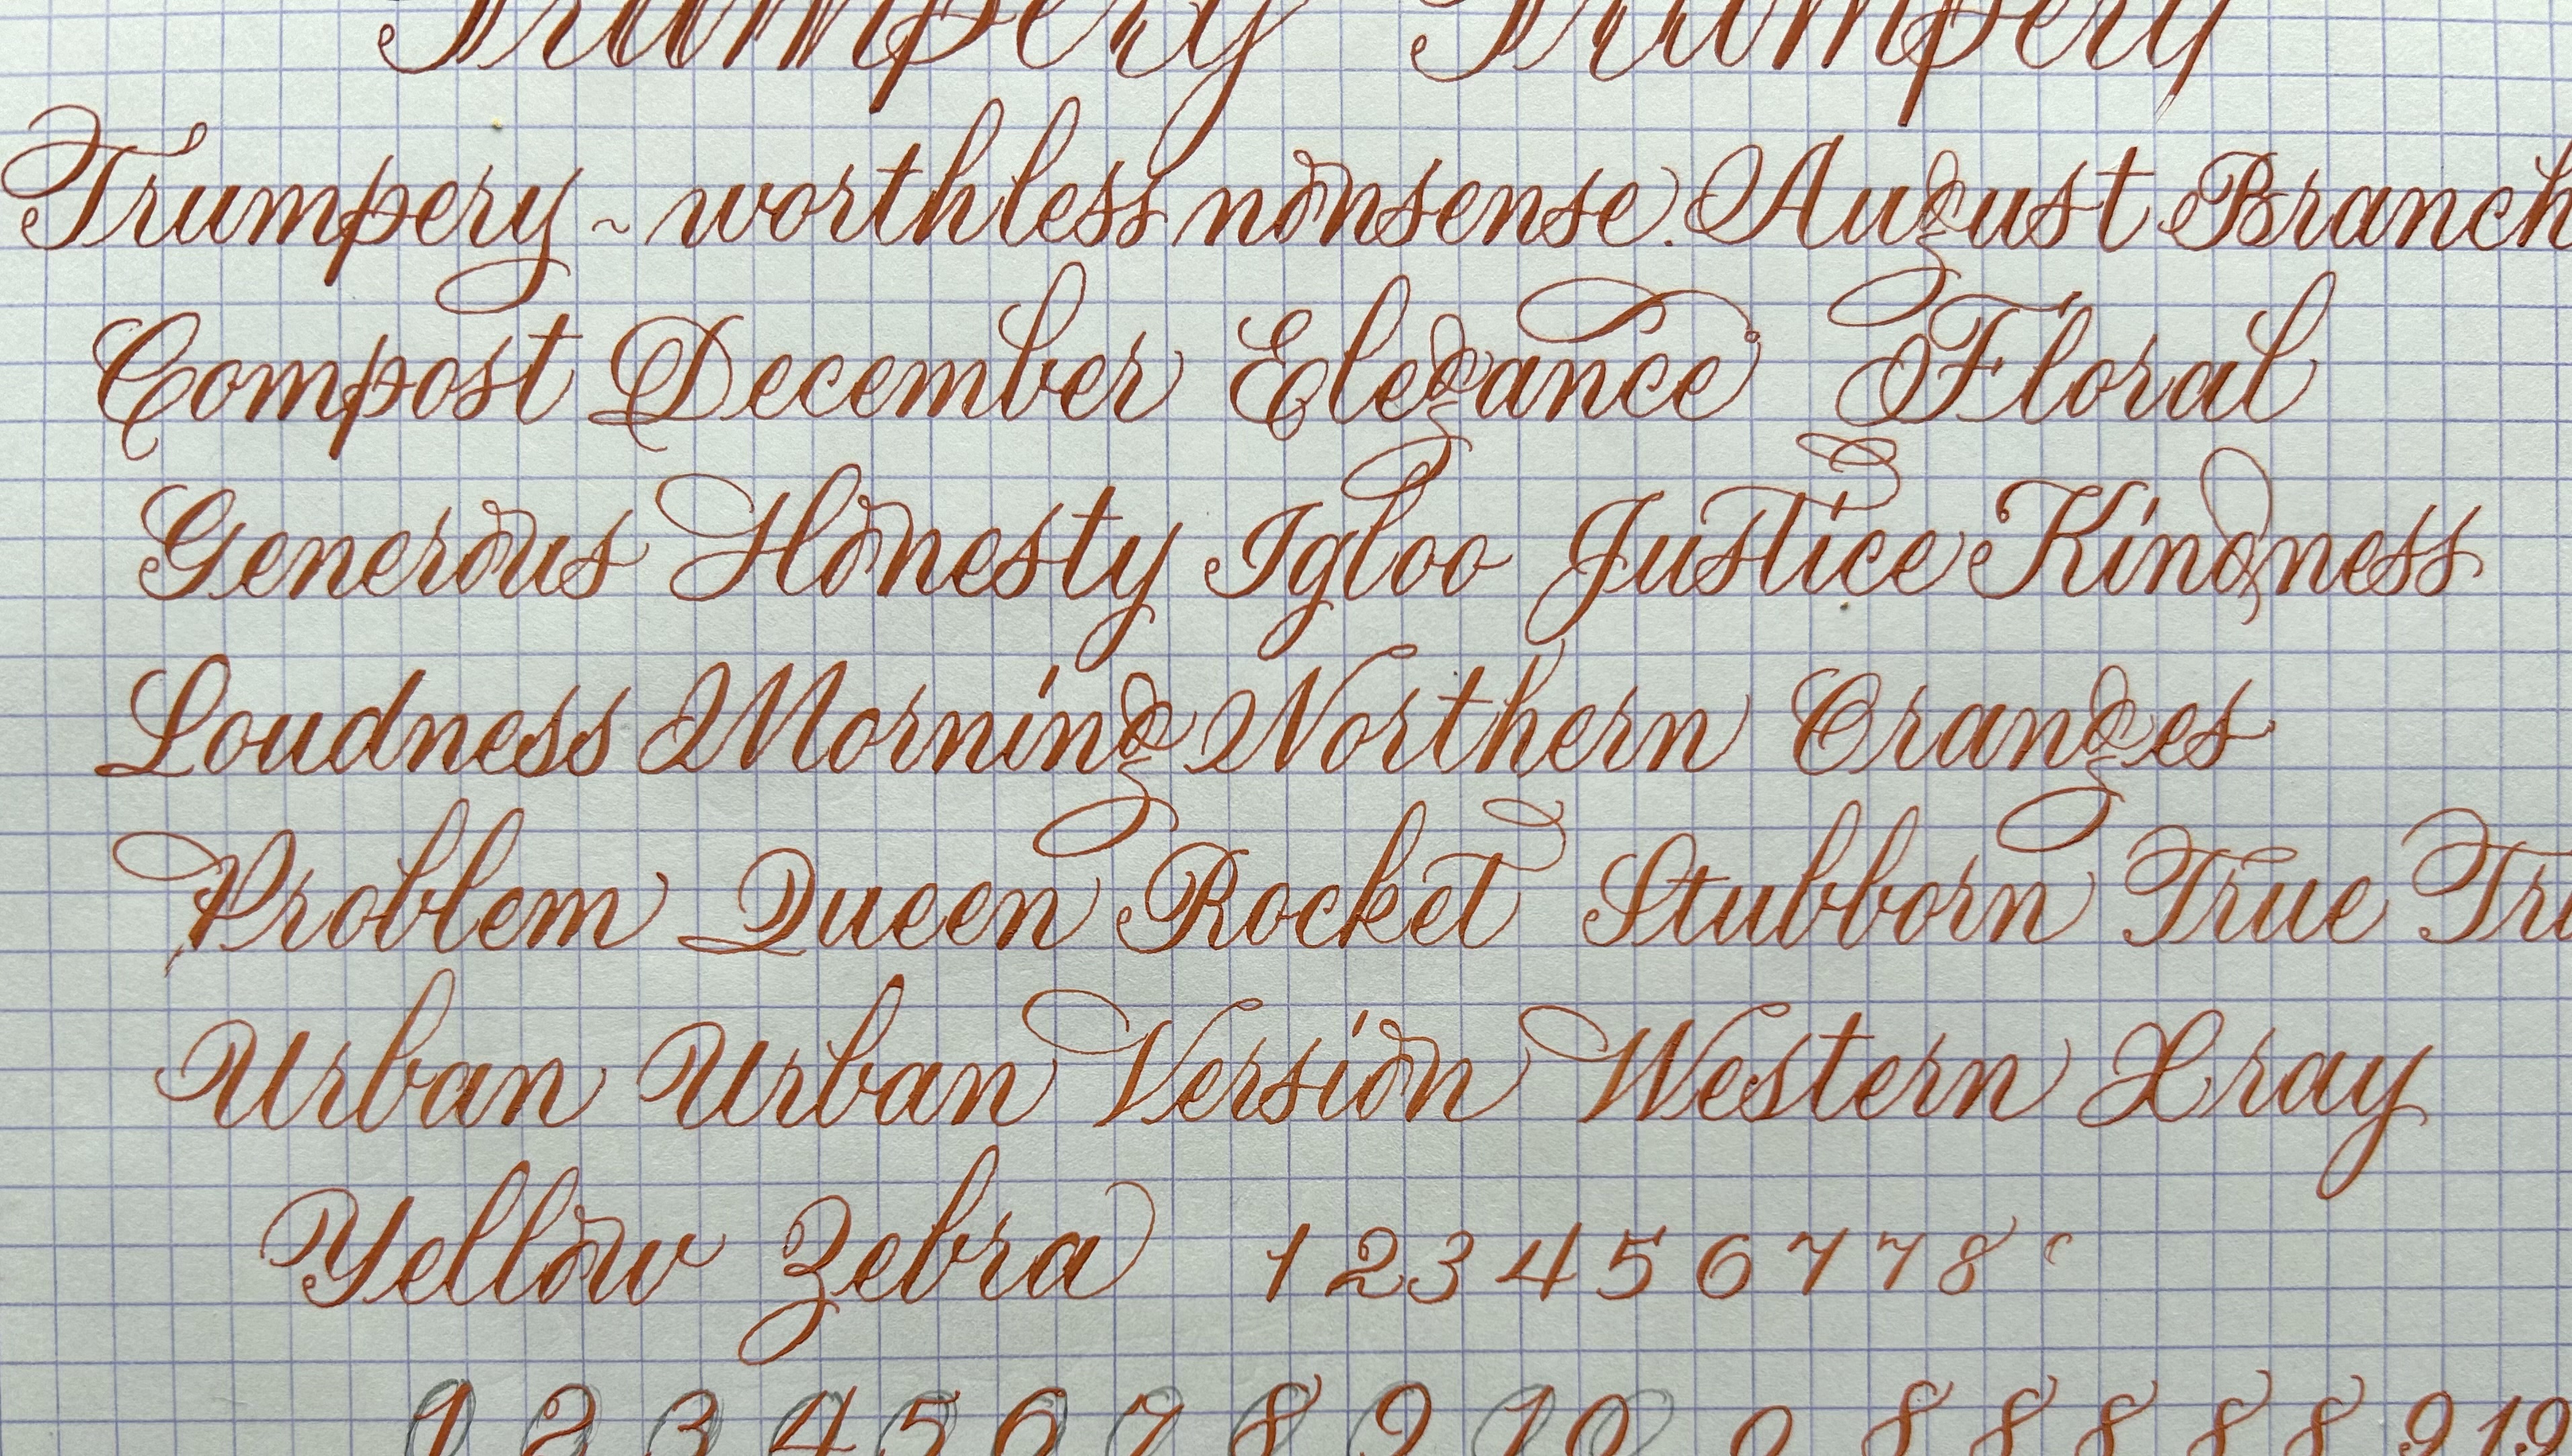 Trumpery Trumpery
Trumpery ~ worthless nonsense. August Branch
Compost December Elegance Floral
Generous Honesty Igloo Justice Kindness
Loudness Morning Northern Oranges
Problem Queen Rocket Stubborn True Tru
Urban Urban Version Western Xray
Yellow Zebra 1 2 3 4 5 6 7 7 8
1 2 3 4 5 6 7 8 9 10 0 8 8 8 8 8 9 19